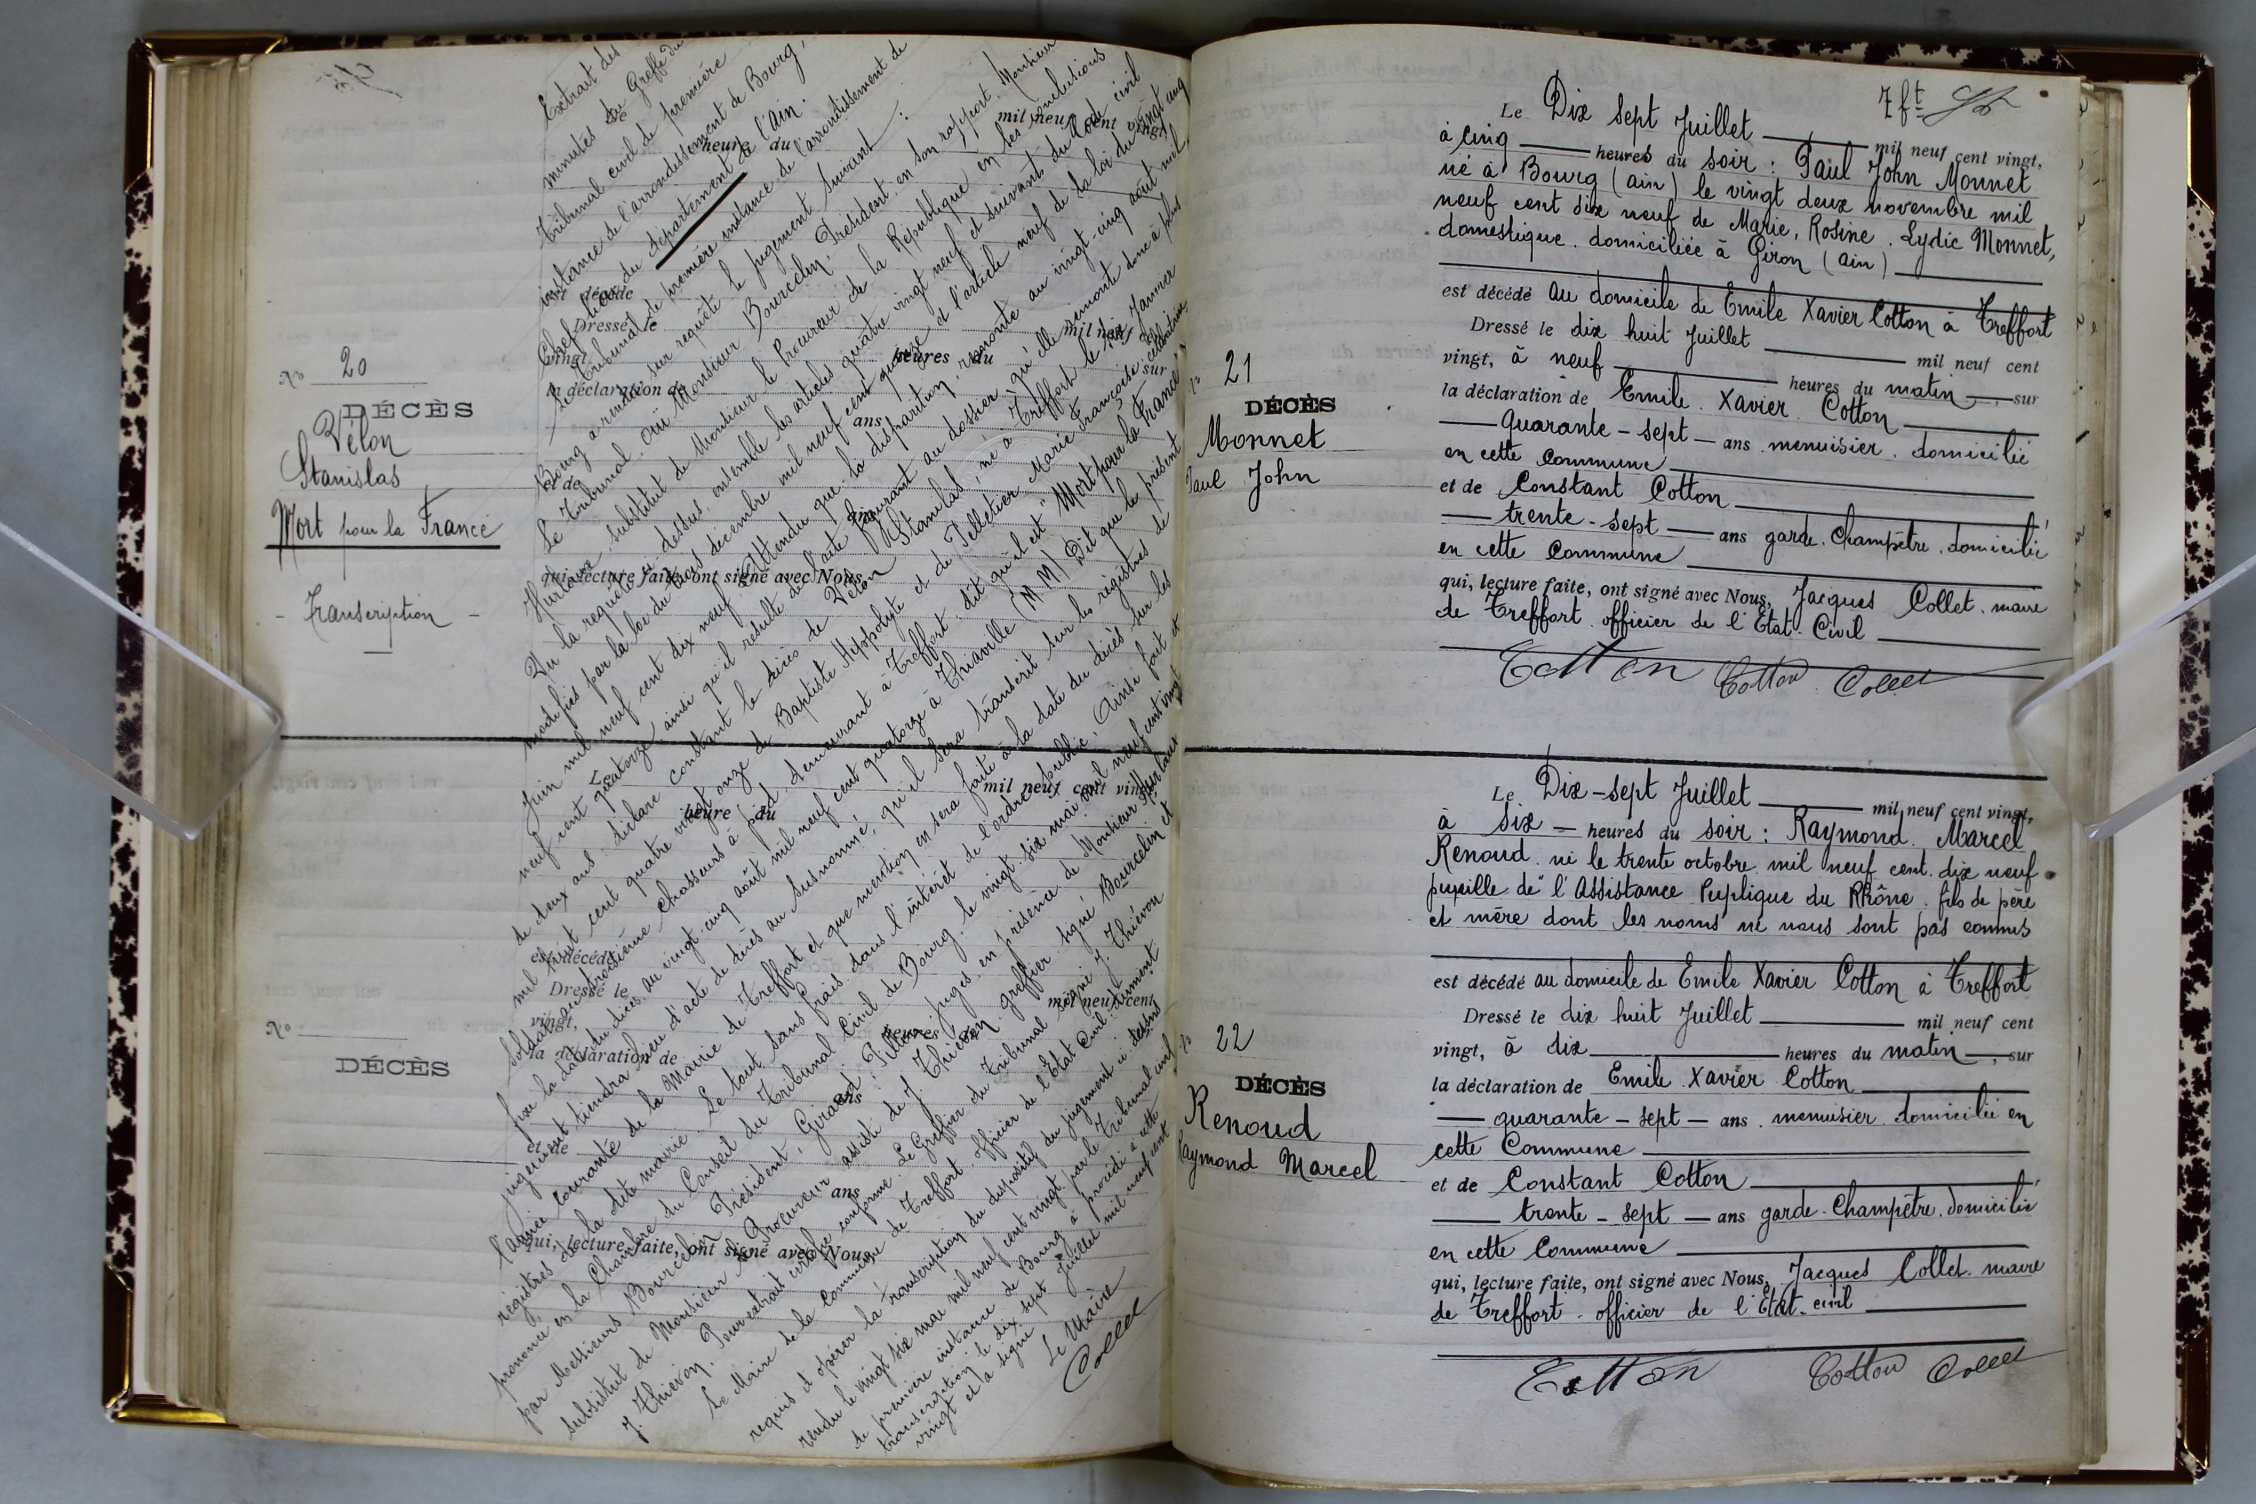 N° 20
DÉCÈS
Vélon
Stanislas
Mort pour la France
- Transcription -
N°
DÉCÈS
Extrait des
minutes du Greffe du
Tribunal civil de première
instance de l'arrondissement de Bourg,
Chef-lieu du département de l'Ain.
Le Tribunal de première instance de l'arrondissement de
Bourg a rendu sur requête le jugement suivant :
Le Tribunal, Ouï Monsieur Bourcelin, Président en son rapport, Monsieur
Hurlaux, substitut de Monsieur le Procureur de la République en ses conclusions
Vu la requête ci dessus, ensemble les articles quatre vingt neuf et suivant du Code civil
modifiés par la loi du trois décembre mil neuf cent quinze et l'article neuf de la loi du vingt cinq
Juin mil neuf cent dix neuf. Attendu que la disparition remonte au vingt-cinq août mil
neuf cent quatorze ainsi qu'il résulte de l'acte figurant au dossier, qu'elle remonte donc à plus
de deux ans. déclare constant le décès de Vélon Stanislas, né à Treffort le Janvier
mil huit cent quatre vingt onze de Baptiste Hippolyte et de Pelletier Marie Françoise célibataire
soldat au troisième chasseurs à pied, demeurant à Treffort. dit qu'il est "Mort pour la France"
fixe la date du décès au vingt-cinq août mil neuf cent quatorze à Thiaville (M.M) Dit que le présent
jugement tiendra lieu d'acte de décès au susnommé, qu'il sera transcrit sur les registres de
l'année courante de la Mairie de Treffort et que mention en sera faite à la date du décès sur les
registres de la dite mairie. Le tout sans frais dans l'intérêt de l'ordre public. Ainsi fait et
prononcé en la Chambre du Conseil du Tribunal Civil de Bourg, le vingt-six mai mil neuf cent vingt
par Messieurs Bourcelin Président, Girard, juges en présence de Monsieur Hurlaux
substitut de Monsieur le Procureur assisté de J. Thiévon greffier signé Bourcelin et
J. Thiévon. Pour extrait certifié conforme. Le Greffier du Tribunal signé J. Thiévon
Le Maire de la Commune de Treffort officier de l'État Civil dûment
requis d'opérer la transcription du dispositif du jugement ci dessus
rendu le vingt six mai mil neuf cent vingt par le Tribunal civil
de première instance de Bourg a procédé à cette
transcription le dix sept Juillet mil neuf cent
vingt et a signé
Le Maire
Collet
heure du
mil neuf cent vingt
est décédé
Dressé le
mil neuf cent
vingt,
heures du
sur
la déclaration de
ans
et de
ans
qui, lecture faite, ont signé avec Nous,
Le
mil neuf cent vingt
heure du
est décédé
Dressé le
mil neuf cent
vingt,
heures
la déclaration de
ans
et de
ans
qui, lecture faite, ont signé avec Nous,
7bt
N° 21
DÉCÈS
Monnet
Paul John
Le Dix sept Juillet mil neuf cent vingt,
à cinq heures du soir : Paul John Monnet
né à Bourg (ain) le vingt deux novembre mil
neuf cent dix neuf de Marie, Rosine. Lydie Monnet,
domestique. domiciliée à Giron (ain)
est décédé au domicile de Emile Xavier Cotton à Treffort
Dressé le dix huit Juillet mil neuf cent
vingt, à neuf heures du matin, sur
la déclaration de Emile. Xavier. Cotton
quarante - sept ans menuisier. domicilié
en cette commune
et de Constant Cotton
trente - sept ans garde. Champêtre. domicilié
en cette commune
qui, lecture faite, ont signé avec Nous, Jacques Collet. maire
de Treffort. officier de l'Etat - Civil
Cotton Cotton Collet
N° 22
DÉCÈS
Renoud
Raymond Marcel
Le Dix-sept Juillet mil neuf cent vingt,
à six heures du soir : Raymond. Marcel
Renoud. né le trente octobre mil neuf cent dix neuf
pupille de l'Assistance Puplique du Rhône. fils de père
et mère dont les noms ne nous sont pas connus
est décédé au domicile de Emile Xavier Cotton à Treffort
Dressé le dix huit Juillet mil neuf cent
vingt, à dix heures du matin, sur
la déclaration de Emile. Xavier Cotton
quarante - sept ans. menuisier. domicilié en
cette Commune
et de Constant Cotton
trente - sept ans garde. Champêtre. domicilié
en cette Commune
qui, lecture faite, ont signé avec Nous, Jacques Collet. maire
de Treffort. officier de l'Etat. civil
Cotton Cotton Collet